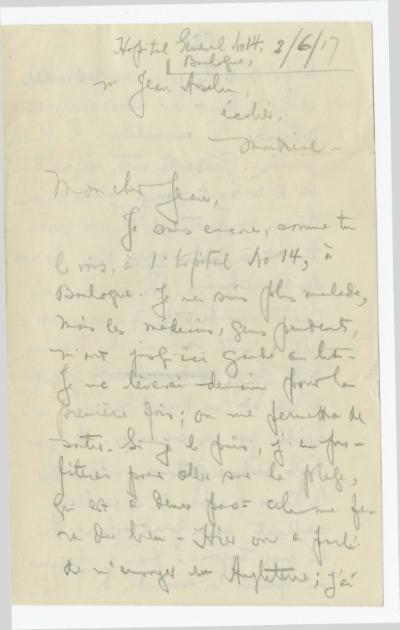 Hopital General No 14, 2/6/17
Boulogne,
M. Jean Asselin,
écolier,
Montréal -
Mon cher Jean,
Je suis encore, comme tu
le vois, à l'hôpital No 14, à
Boulogne. Je ne suis plus malade,
mais les médecins, gens prudents,
m'ont jusqu'ici gardé au lit.
Je me lèverai demain pour la
première fois; on me permettra de
sortir. Si je le puis, j'en pro-
fiterai pour aller sur la plage,
qui est à deux pas - cela me fe-
ra du bien - Hier on a parlé
de m'envoyer en Angleterre; j'ai